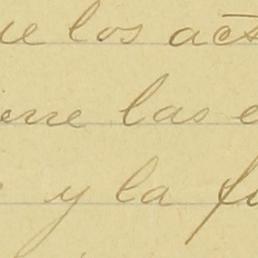 ue los act
iene las e
y la fu